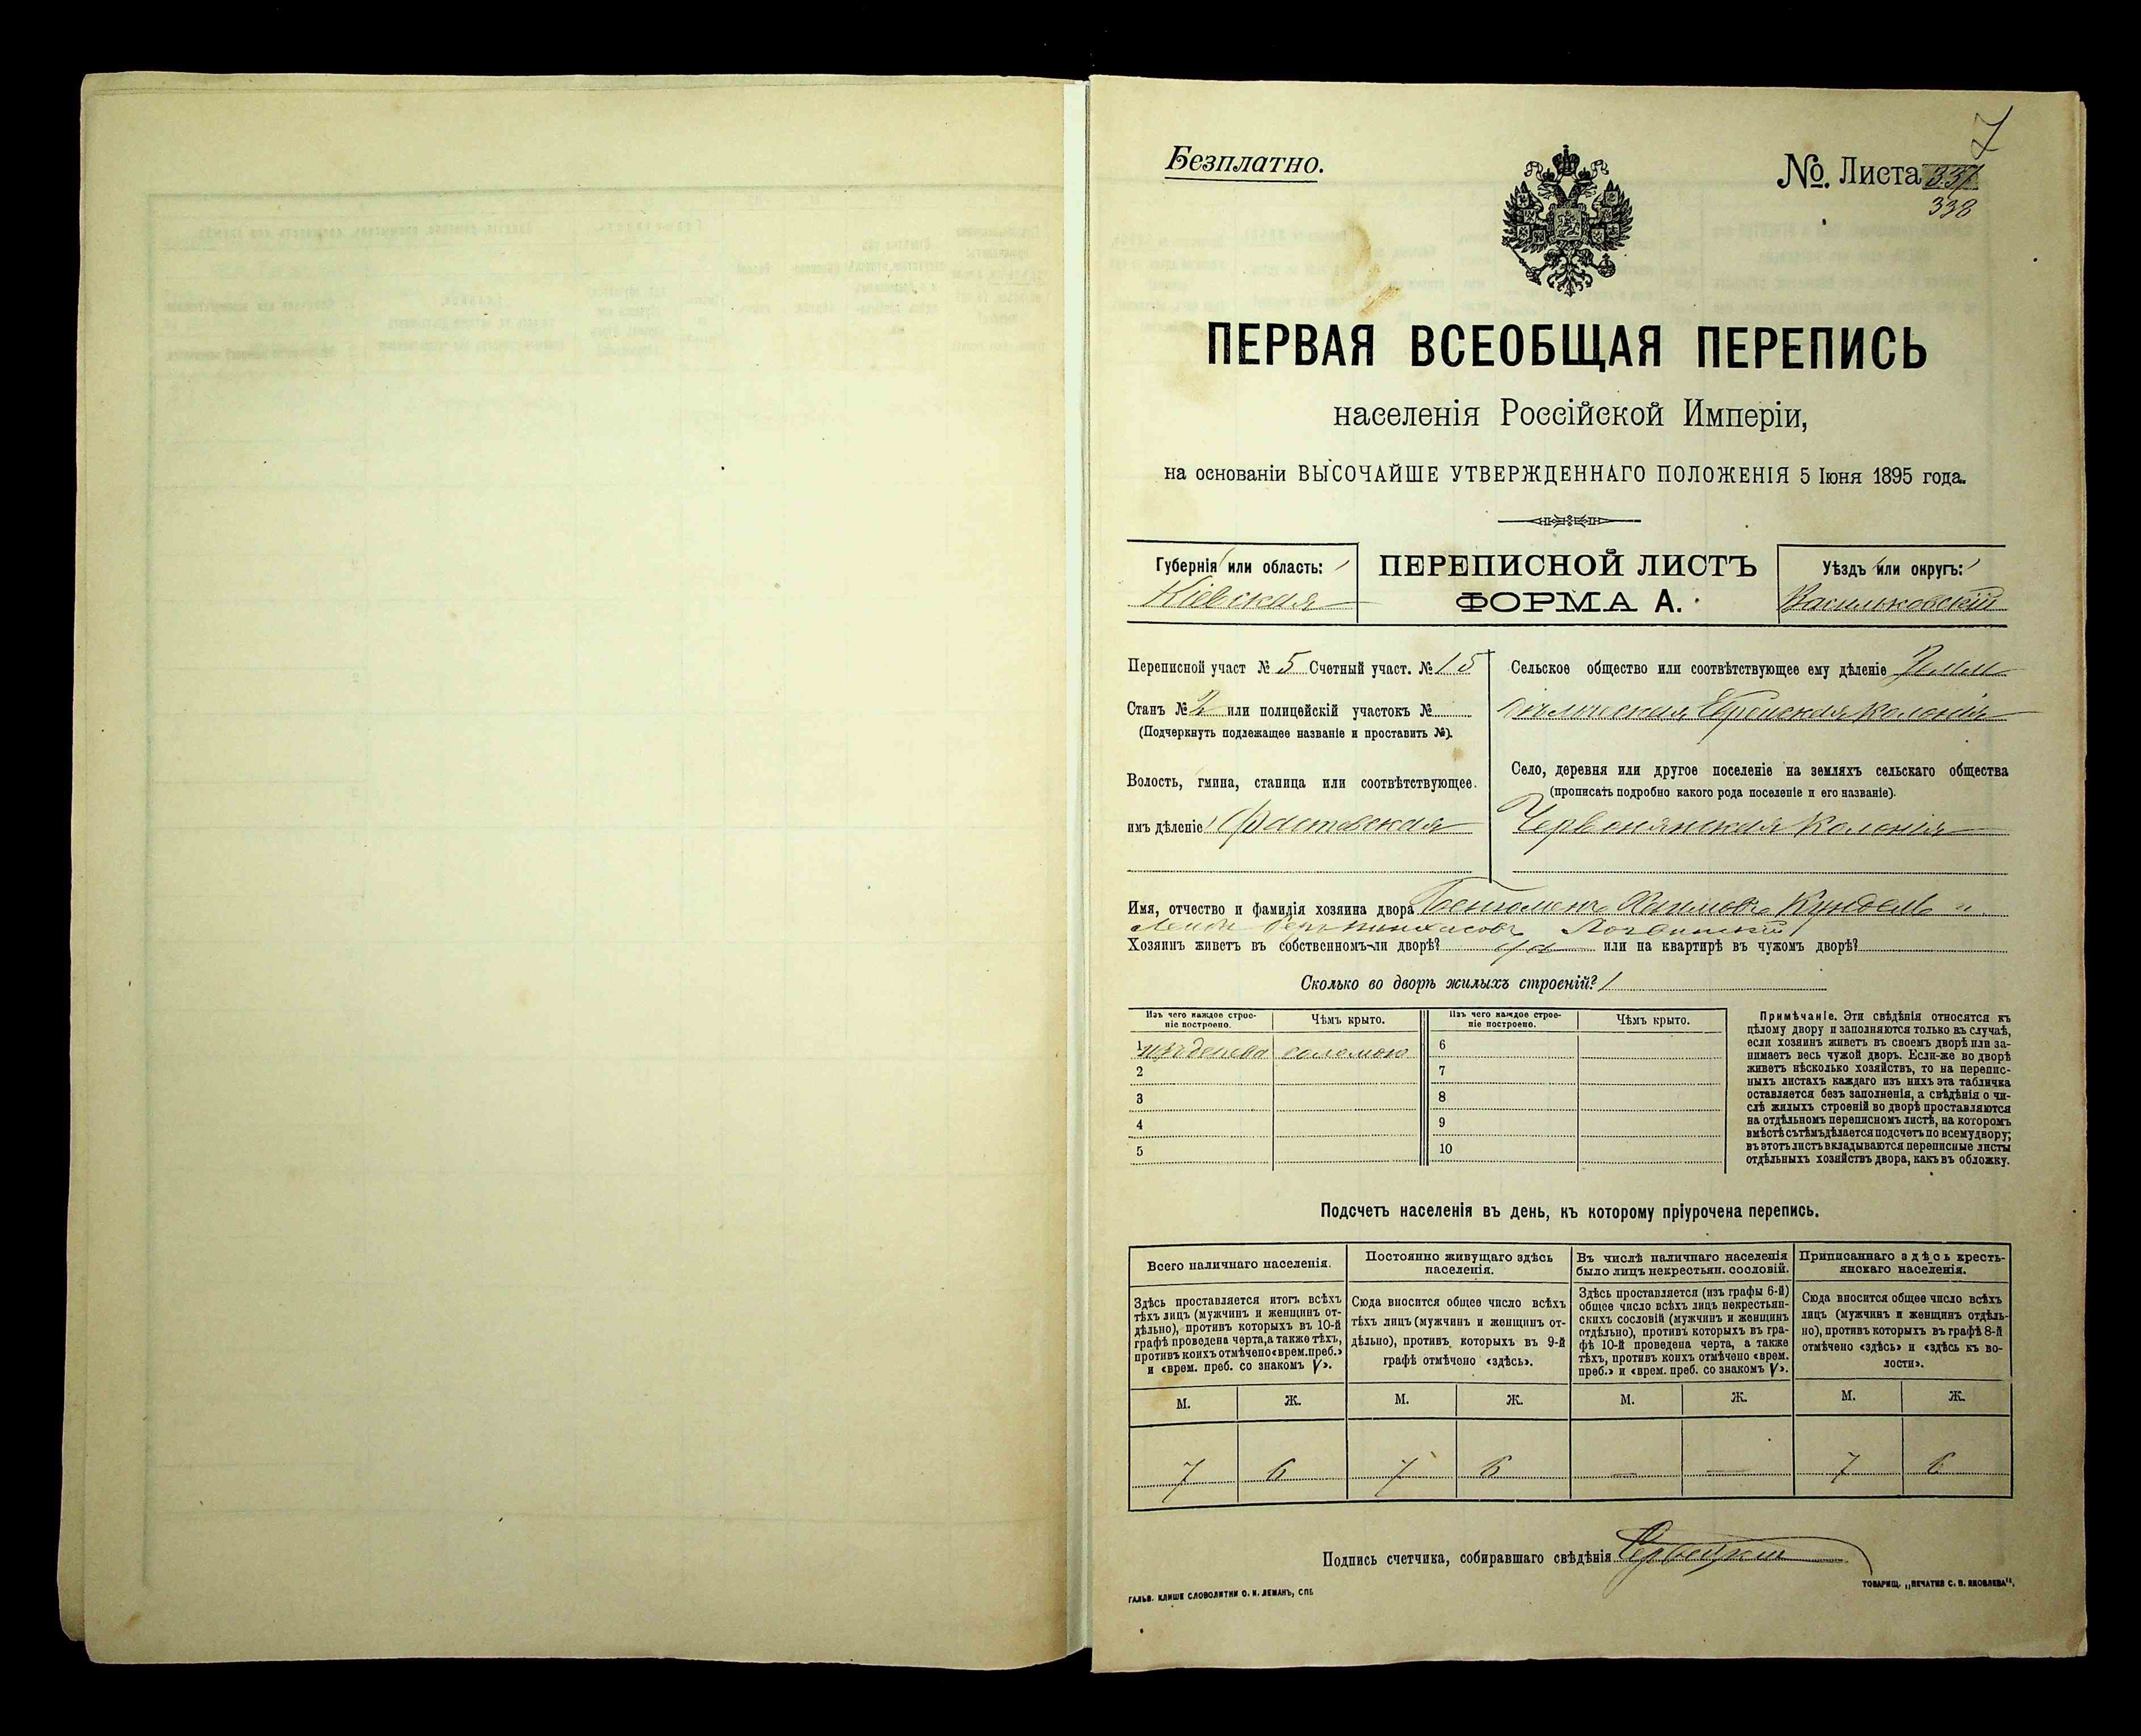 7
Безплатно.
№. Листа 337
338
ПЕРВАЯ ВСЕОБЩАЯ ПЕРЕПИСЬ
населенія Россійской Имперіи,
на основаніи ВЫСОЧАЙШЕ УТВЕРЖДЕННАГО ПОЛОЖЕНІЯ 5 Іюня 1895 года.
Губернія или область:
Кіевская
ПЕРЕПИСНОЙ ЛИСТЪ
ФОРМА А.
Уѣздъ или округъ:
Васильковскій
Переписной участ № 5 Счетный участ. № 15
Станъ № 2 или полицейскій участокъ №
(Подчеркнуть подлежащее названіе и проставить №).
Волость, гмина, станица или соотвѣтствующее.
имъ дѣленіе Фастовская
Сельское общество или соотвѣтствующее ему дѣленіе
Еврейская колонія
Село, деревня или другое поселеніе на земляхъ сельскаго общества
(прописать подробно какого рода поселеніе и его названіе).
Червонянская Колонія
Имя, отчество и фамилія хозяина двора Кундель и
Хозяинъ живетъ въ собственномъ-ли дворѣ? да или на квартирѣ въ чужомъ дворѣ?
Сколько во дворѣ жилыхъ строеній? 1
Изъ чего каждое строе-
ніе построено.
Чѣмъ крыто.
Изъ чего каждое строе-
ніе построено.
Чѣмъ крыто.
1 изъ дерева соломою
2
3
4
5
6
7
8
9
10
Примѣчаніе. Эти свѣдѣнія относятся къ
цѣлому двору и заполняются только въ случаѣ,
если хозяинъ живетъ въ своемъ дворѣ или за-
нимаетъ весь чужой дворъ. Если-же во дворѣ
живетъ нѣсколько хозяйствъ, то на перепис-
ныхъ листахъ каждаго изъ нихъ эта табличка
оставляется безъ заполненія, а свѣдѣнія о чи-
слѣ жилыхъ строеній во дворѣ проставляются
на отдѣльномъ переписномъ листѣ, на которомъ
вмѣстѣ съ тѣмъ дѣлается подсчетъ по всему двору;
въ этотъ листъ вкладываются переписные листы
отдѣльныхъ хозяйствъ двора, какъ въ обложку.
Подсчетъ населенія въ день, къ которому пріурочена перепись.
Всего наличнаго населенія.
Здѣсь проставляется итогъ всѣхъ
тѣхъ лицъ (мужчинъ и женщинъ от-
дѣльно), противъ которыхъ въ 10-й
графѣ проведена черта, а также тѣхъ,
противъ коихъ отмѣчено «врем. преб.»
и «врем. преб. со знакомъ V».
Постоянно живущаго здѣсь
населенія.
Сюда вносится общее число всѣхъ
тѣхъ лицъ (мужчинъ и женщинъ от-
дѣльно), противъ которыхъ въ 9-й
графѣ отмѣчено «здѣсь».
Въ числѣ наличнаго населенія
было лицъ некрестьян. сословій.
Здѣсь проставляется (изъ графы 6-й)
общее число всѣхъ лицъ некрестьян-
скихъ сословій (мужчинъ и женщинъ
отдѣльно), противъ которыхъ въ гра-
фѣ 10-й проведена черта, а также
тѣхъ, противъ коихъ отмѣчено «врем.
преб.» и «врем. преб. со знакомъ V».
Приписаннаго здѣсь кресть-
янскаго населенія.
Сюда вносится общее число всѣхъ
лицъ (мужчинъ и женщинъ отдѣль-
но), противъ которыхъ въ графѣ 8-й
отмѣчено «здѣсь» и «здѣсь къ во-
лости».
М. Ж. М. Ж. М. Ж. М. Ж.
7 6 7 6 — — 7 6
Подпись счетчика, собиравшаго свѣдѣнія
ГАЛЬВ. КЛИШЕ СЛОВОЛИТНИ О. И. ЛЕМАНЪ, СПБ
ТОВАРИЩ. „ПЕЧАТНЯ С. П. ЯКОВЛЕВА",